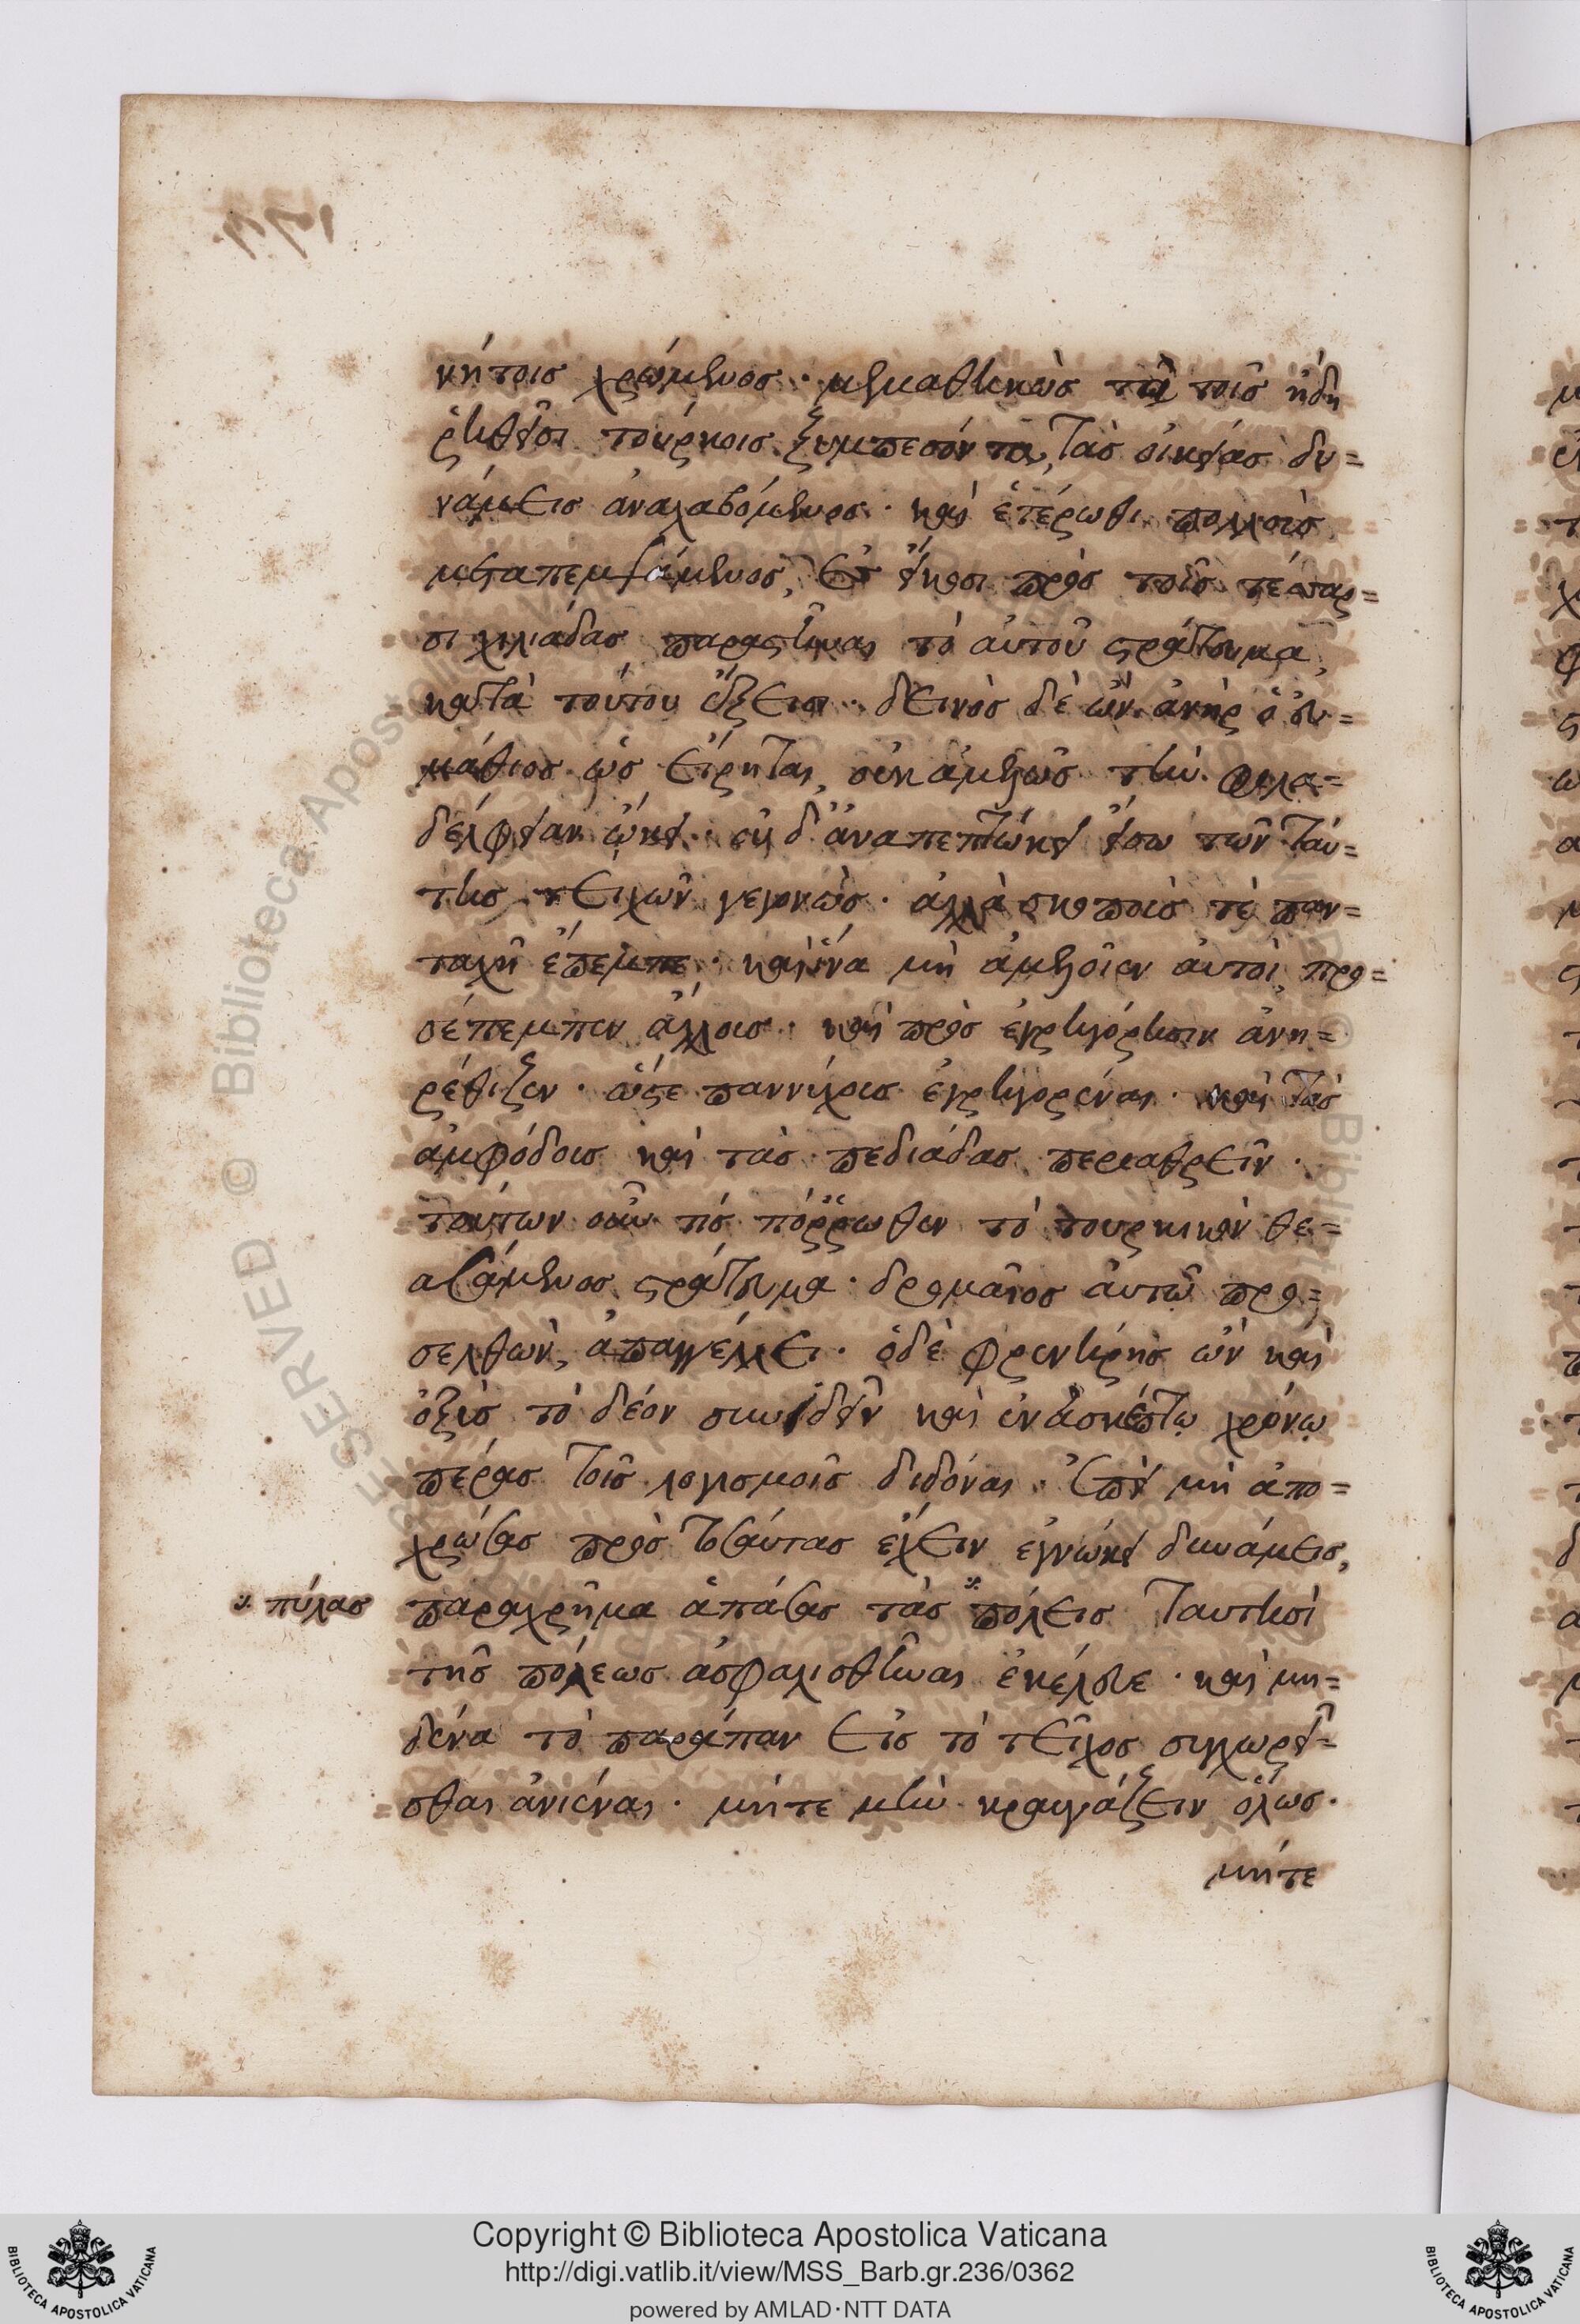 κήτοις χρώμενος · μεμαθηκὼς τὰ τοῖς ἤδη
ῥηθεῖσι τούρκοις ξυμπεσόντα, τὰς οἰκείας δυ=
νάμεις ἀναλαβόμενος · καὶ ἑτέρωθι πολλοὺς
μεταπεμψάμενος, εἰς εἴκοσι πρὸς τοῖς τέσσαρ=
σι χιλιάδας παραστῆναι τὸ αὐτοῦ στράτευμα,
κατὰ τούτου ἔξεισι · δεινὸς δὲ ὢν ἀνὴρ ὁ εὐ=
μάθιος ὡς εἴρηται, οὐκ ἀμελῶς τὴν φιλα=
δέλφειαν ᾤκει · οὐ δ' ἀναπεπτώκει εἴσω τῶν ταύ=
της τειχῶν γεγονὼς · ἀλλὰ σκοποὺς τὲ παν=
ταχῇ ἔπεμπε · καὶ ἵνα μὴ ἀμελοῖεν αὐτοὶ, προ=
σέπεμπεν ἄλλους · καὶ πρὸς ἐγρηγόρησιν ἀνη=
ρέθιζεν · ὥστε παννύχους ἐγρηγορέναι · καὶ τὰς
ἀμφόδους καὶ τὰς πεδιάδας περιαθρεῖν ·
τούτων οὖν τίς πόῤῥωθεν τὸ τουρκικὸν θε=
ασάμενος στράτευμα · δρομαῖος αὐτῷ προ=
σελθὼν, ἀπαγγέλλει · ὁ δὲ φρενήρης ὢν καὶ
ὀξὺς τὸ δέον συνιδεῖν καὶ ἐν ἀσκέπτῳ χρόνῳ
πέρας τοῖς λογισμοῖς διδόναι · ἐπεὶ μὴ ἀπο=
χρώσας πρὸς τοσαύτας ἔχειν ἐγνώκει δυνάμεις,
παραχρῆμα ἁπάσας τὰς ⁘ πόλεις ταυτησὶ
⁘ πύλας
τῆς πόλεως ἀσφαλισθῆναι ἐκέλευε · καὶ μη=
δένα τὸ παράπαν εἰς τὸ τεῖχος συγχωρεῖ=
σθαι ἀνιέναι · μήτε μὴν κραυγάζειν ὅλως ·
μήτε
Copyright © Biblioteca Apostolica Vaticana
http://digi.vatlib.it/view/MSS_Barb.gr.236/0362
powered by AMLAD·NTT DATA
BIBLIOTECA APOSTOLICA VATICANA
BIBLIOTECA APOSTOLICA VATICANA